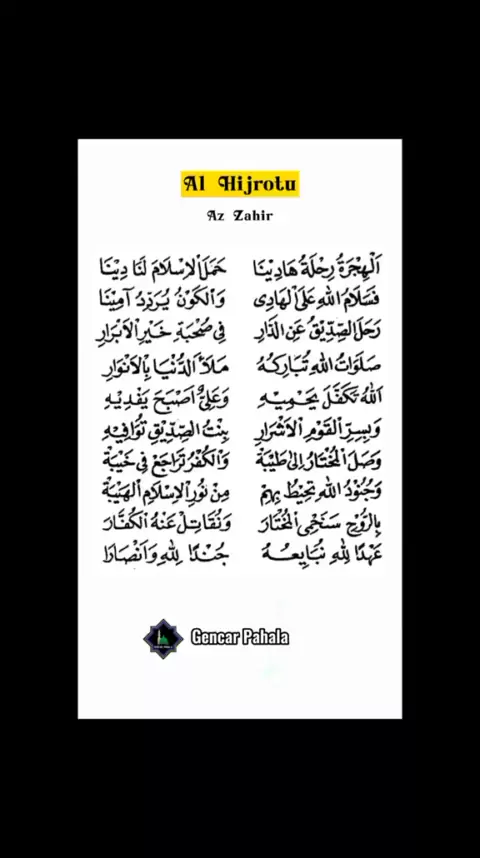 Al Hijrotu
Az Zahir
اَلْهِجْرَةُ رِحْلَةُ هَادِيْنَا حَمَلَ الْاِسْلَامَ لَنَا دِيْنَا
فَسَلَامُ اللهِ عَلَى الْهَادِى وَالْكَوْنُ يُرَدِّدُ آمِيْنَا
رَحَلَ الصِّدِّيْقُ عَنِ الدَّارِ فِي صُحْبَةِ خَيْرِ الْاَبْرَارِ
صَلَوَاتُ اللهِ تُبَارِكُهُ مَلَأَ الدُّنْيَا بِالْاَنْوَارِ
اَللهُ تَكَفَّلَ يَحْمِيْهِ وَعَلِيٌّ اَصْبَحَ يَفْدِيْهِ
وَبِسِرِّ الْقَوْمِ الْاَشْرَارِ بِنْتُ الصِّدِّيْقِ تُوَافِيْهِ
وَصَلَ الْمُخْتَارُ اِلَى طَيْبَةْ وَالْكُفْرُ تَرَاجَعَ فِي خَيْبَةْ
وَجُنُوْدُ اللهِ تُحِيْطُ بِهِمْ مِنْ نُوْرِ الْاِسْلَامِ الْهَيْبَةْ
بِالرُّوْحِ سَنَحْمِى الْمُخْتَارَ وَنُقَاتِلُ عَنْهُ الْكُفَّارَ
عَهْدًا لِلهِ نُبَايِعُهُ جُنْدًا لِلهِ وَاَنْصَارَا
Gencar Pahala